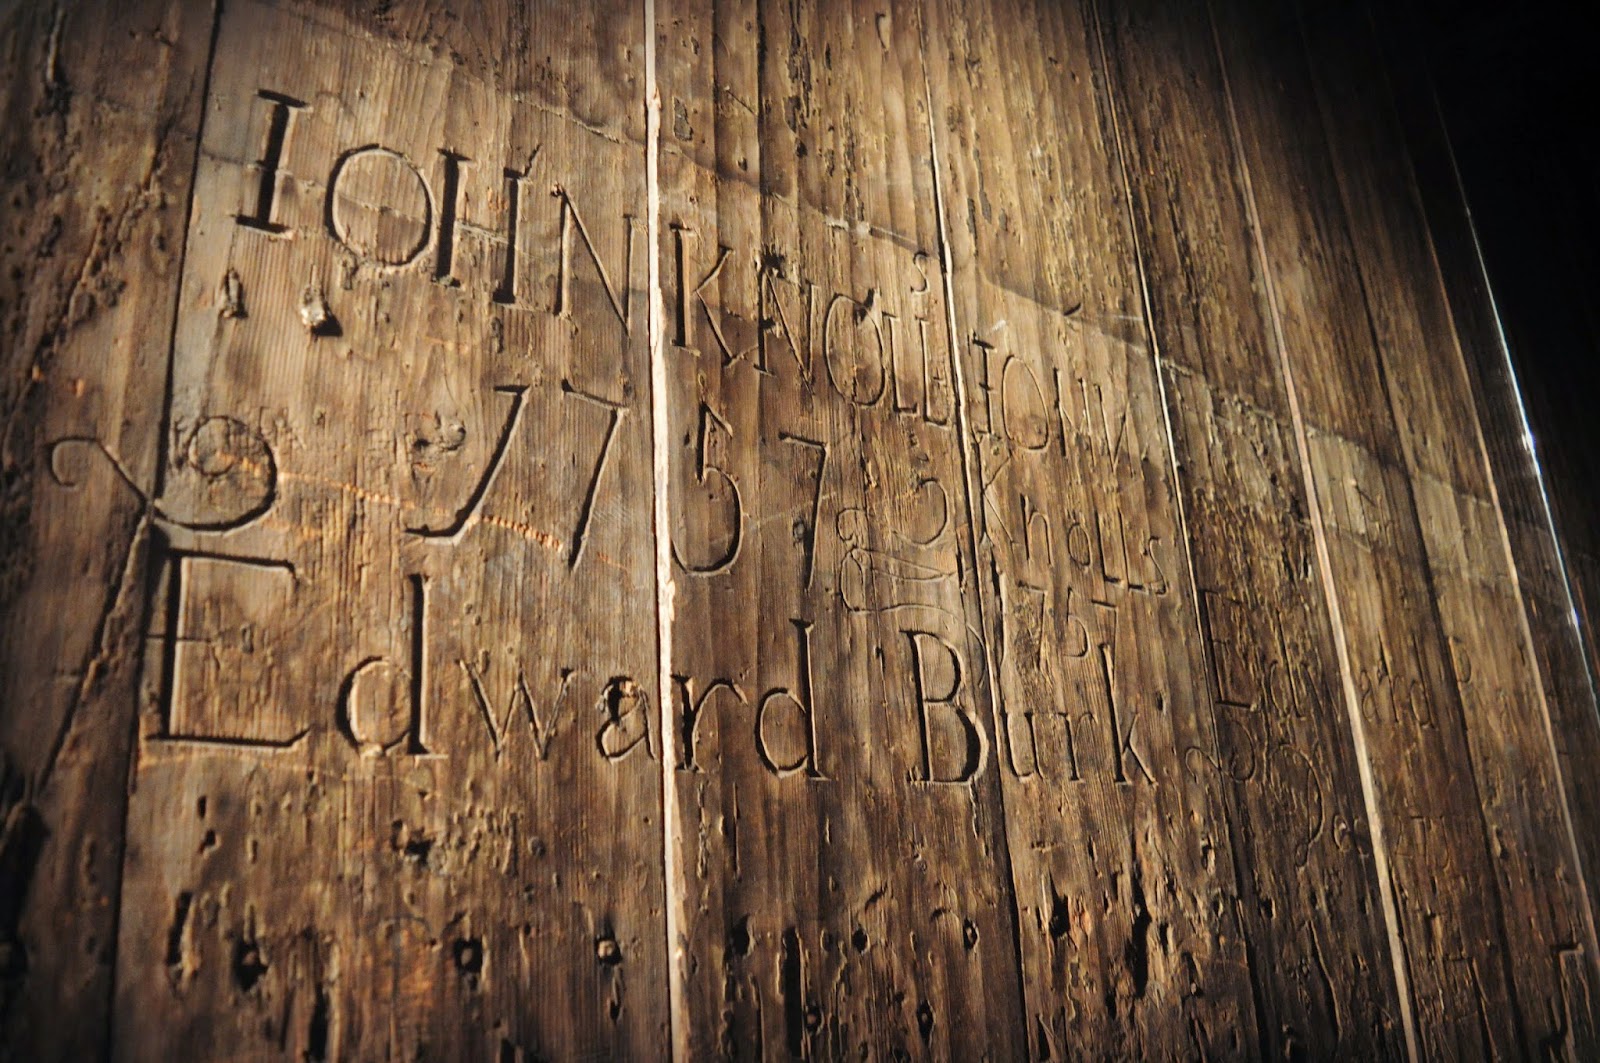 IOHN KNOLLS
1757
Edward Burk
IOHN
Knolls
1757
Edward